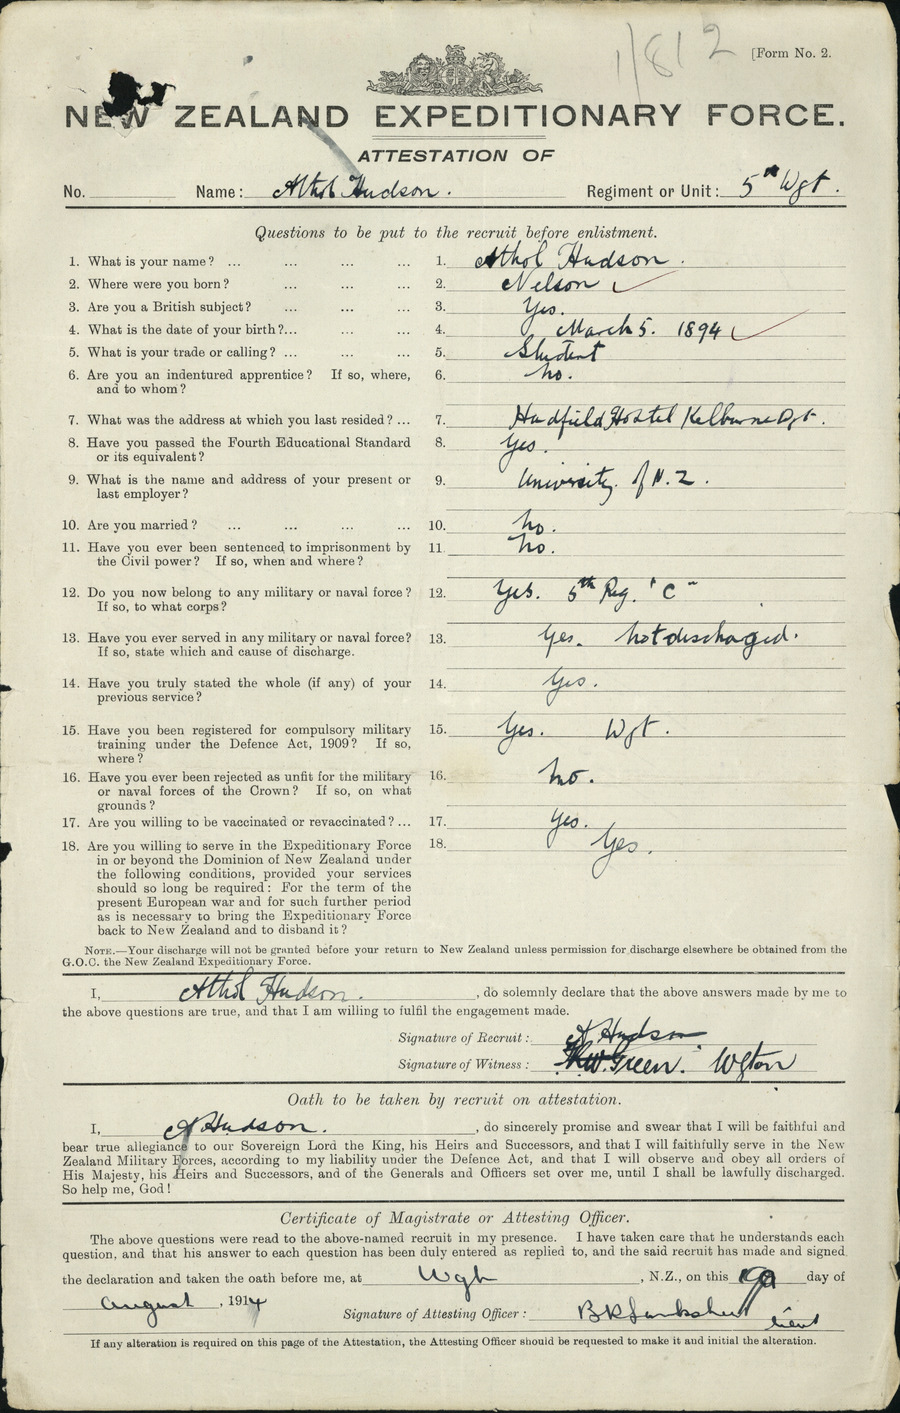 1/812
[Form No. 2.
NEW ZEALAND EXPEDITIONARY FORCE.
ATTESTATION OF
No. Name: Athol Hudson. Regiment or Unit: 5th Wgt.
Questions to be put to the recruit before enlistment.
1. What is your name? ... ... ... ... 1. Athol Hudson.
2. Where were you born? ... ... ... 2. Nelson
3. Are you a British subject? ... ... ... 3. Yes.
4. What is the date of your birth?... ... ... 4. March 5. 1894
5. What is your trade or calling? ... ... ... 5. Student
6. Are you an indentured apprentice? If so, where, 6. No.
and to whom?
7. What was the address at which you last resided? ... 7. Hadfield Hostel Kelburne Wgt.
8. Have you passed the Fourth Educational Standard 8. Yes.
or its equivalent?
9. What is the name and address of your present or 9. University of N.Z.
last employer?
10. Are you married? ... ... ... ... 10. No.
11. Have you ever been sentenced to imprisonment by 11. No.
the Civil power? If so, when and where?
12. Do you now belong to any military or naval force? 12. Yes. 5th Reg. "C"
If so, to what corps?
13. Have you ever served in any military or naval force? 13. Yes. Not discharged.
If so, state which and cause of discharge.
14. Have you truly stated the whole (if any) of your 14. Yes.
previous service?
15. Have you been registered for compulsory military 15. Yes. Wgt.
training under the Defence Act, 1909? If so,
where?
16. Have you ever been rejected as unfit for the military 16. No.
or naval forces of the Crown? If so, on what
grounds?
17. Are you willing to be vaccinated or revaccinated? ... 17. Yes.
18. Are you willing to serve in the Expeditionary Force 18. Yes.
in or beyond the Dominion of New Zealand under
the following conditions, provided your services
should so long be required: For the term of the
present European war and for such further period
as is necessary to bring the Expeditionary Force
back to New Zealand and to disband it?
NOTE.—Your discharge will not be granted before your return to New Zealand unless permission for discharge elsewhere be obtained from the
G.O.C. the New Zealand Expeditionary Force.
I, Athol Hudson. , do solemnly declare that the above answers made by me to
the above questions are true, and that I am willing to fulfil the engagement made.
Signature of Recruit: A Hudson
Signature of Witness: Green. Wgton
Oath to be taken by recruit on attestation.
I, A Hudson. , do sincerely promise and swear that I will be faithful and
bear true allegiance to our Sovereign Lord the King, his Heirs and Successors, and that I will faithfully serve in the New
Zealand Military Forces, according to my liability under the Defence Act, and that I will observe and obey all orders of
His Majesty, his Heirs and Successors, and of the Generals and Officers set over me, until I shall be lawfully discharged.
So help me, God!
Certificate of Magistrate or Attesting Officer.
The above questions were read to the above-named recruit in my presence. I have taken care that he understands each
question, and that his answer to each question has been duly entered as replied to, and the said recruit has made and signed
the declaration and taken the oath before me, at Wgt , N.Z., on this day of
August , 1914
Signature of Attesting Officer: Lieut
If any alteration is required on this page of the Attestation, the Attesting Officer should be requested to make it and initial the alteration.